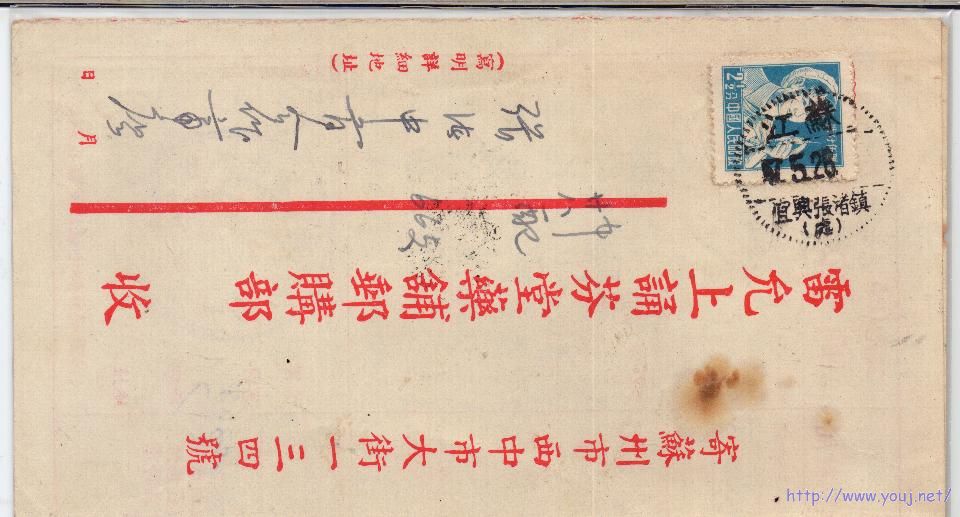 寄蘇州市西中市大街一三四號
雷允上誦芬堂藥舖郵購部 收
(寫明詳細地址)
張渚
月 日
2½分中國人民郵政
江蘇
57.5.28
宜興張渚鎮
(處)
http://www.youj.net/